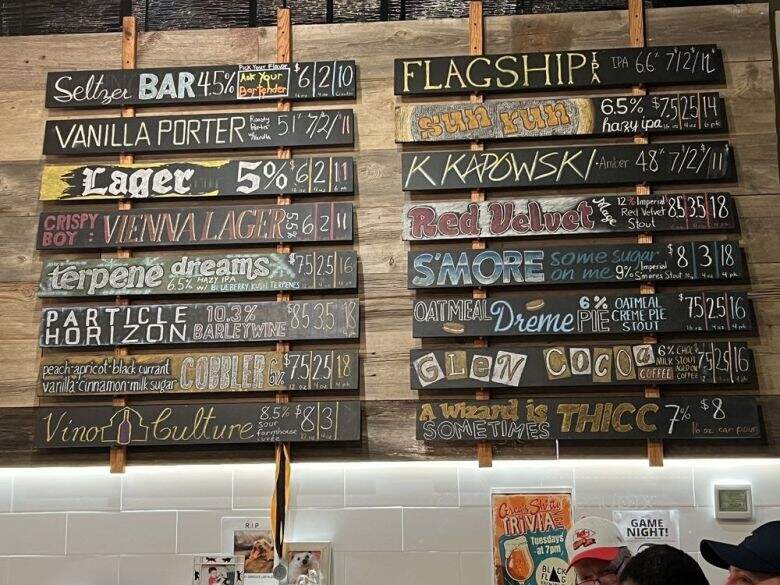 Seltzer BAR 4.5% Pick Your Flavor Ask Your Bartender $6|2|10
VANILLA PORTER Roasty Vanilla 5.1% 7/2/11
Lager 5% $6|2|11
CRISPY BOY: VIENNA LAGER 5.5% $6|2|11
terpene dreams $7.5|2.5|16
6.5% HAZY IPA w/ BLUEBERRY KUSH TERPENES
PARTICLE HORIZON 10.3% BARLEYWINE $8.5|3.5|18
peach·apricot·black currant
vanilla·cinnamon·milk sugar COBBLER 6% $7.5|2.5|18
Vino Culture 8.5% sour farmhouse cuvée $8|3
FLAGSHIP! IPA IPA 6.6% 7/2/12
sun run 6.5% hazy ipa $7.5|2.5|14
K KAPOWSKI · Amber 4.8% 7/2/11
Red Velvet Mage 12% Imperial Red Velvet Stout $8.5|3.5|18
S'MORE some sugar on me 9% Imperial S'mores Stout $8|3|18
OATMEAL Dreme PIE 6% OATMEAL CREME PIE STOUT $7.5|2.5|16
GLEN COCOA COFFEE 6% CHOC MILK STOUT AGED ON COFFEE $7.5|2.5|16
A Wizard is SOMETIMES THICC 7% $8
16 oz can pour
R.I.P.
Greg's Sh*tty
TRIVIA
Tuesdays
at 7pm
BLACK
GAME
NIGHT!